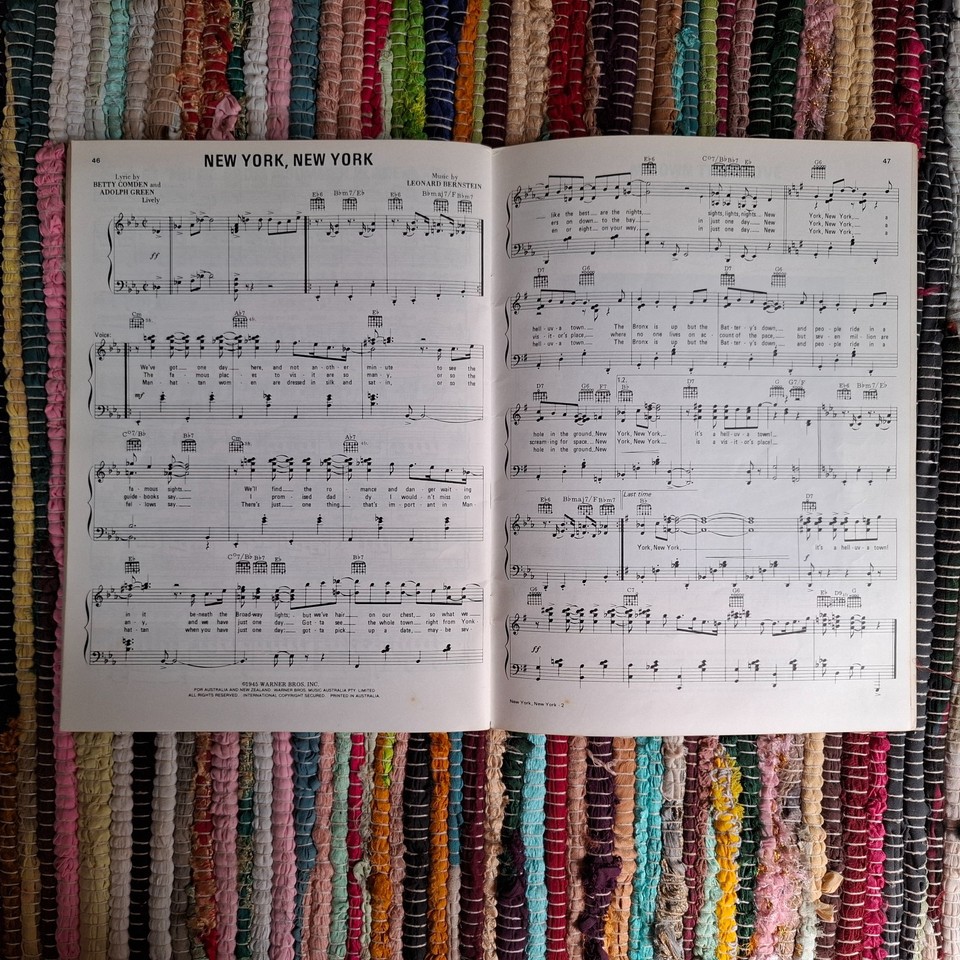 46
NEW YORK, NEW YORK
Lyric by
BETTY COMDEN and
ADOLPH GREEN
Music by
LEONARD BERNSTEIN
Lively
E♭6 B♭m7/E♭ E♭6 B♭maj7/F B♭m7
ff
Cm Ab7 E♭6
Voice:
We've got one day here, and not an-oth-er min-ute to see the
The fa-mous plac-es to vis-it are so man-y, or so the
Man-hat-tan wom-en are dressed in silk and sat-in, or so the
mf
C°7/B♭ B♭7 Cm Ab7
fa-mous sights. We'll find the ro-mance and dan-ger wait-ing
guide-books say. I prom-ised dad-dy I would-n't miss on
fel-lows say. There's just one thing that's im-por-tant in Man-
E♭ C°7/B♭ B♭7 E♭ B♭7
in it be-neath the Broad-way lights; but we've hair on our chest, so what we
an-y, and we have just one day. Got-ta see the whole town right from Yonk-
hat-tan when you have just one day: got-ta pick up a date, may-be sev-
©1945 WARNER BROS. INC.
FOR AUSTRALIA AND NEW ZEALAND: WARNER BROS. MUSIC AUSTRALIA PTY. LIMITED
ALL RIGHTS RESERVED INTERNATIONAL COPYRIGHT SECURED PRINTED IN AUSTRALIA
47
E♭6 C°7/B♭ B♭7 E♭ G6
like the best are the nights, sights, lights, nights. New York, New York, a
ers on down to the bay in just one day. New York, New York, a
en or eight on your way in just one day. New York, New York, a
D7 G6 D7 G6
hell-uv-a town. The Bronx is up but the Bat-ter-y's down, and peo-ple ride in a
hell-uv-a town, where no one lives on ac-count of the pace, but sev-en mil-lion are
hell-uv-a town. The Bronx is up but the Bat-ter-y's down, and peo-ple ride in a
D7 G6 F7 1.2. B♭ D7 G G7/F E♭6 B♭m7/E♭
hole in the ground, New York, New York, it's a hell-uv-a town!
scream-ing for space. New York, New York, is a vis-it-or's place!
hole in the ground, New
E♭6 B♭maj7/F B♭m7 Last time B♭ D7
York, New York, it's a hell-uv-a town!
f
G6 C7 G6 E♭ D9 G
ff
New York, New York - 2